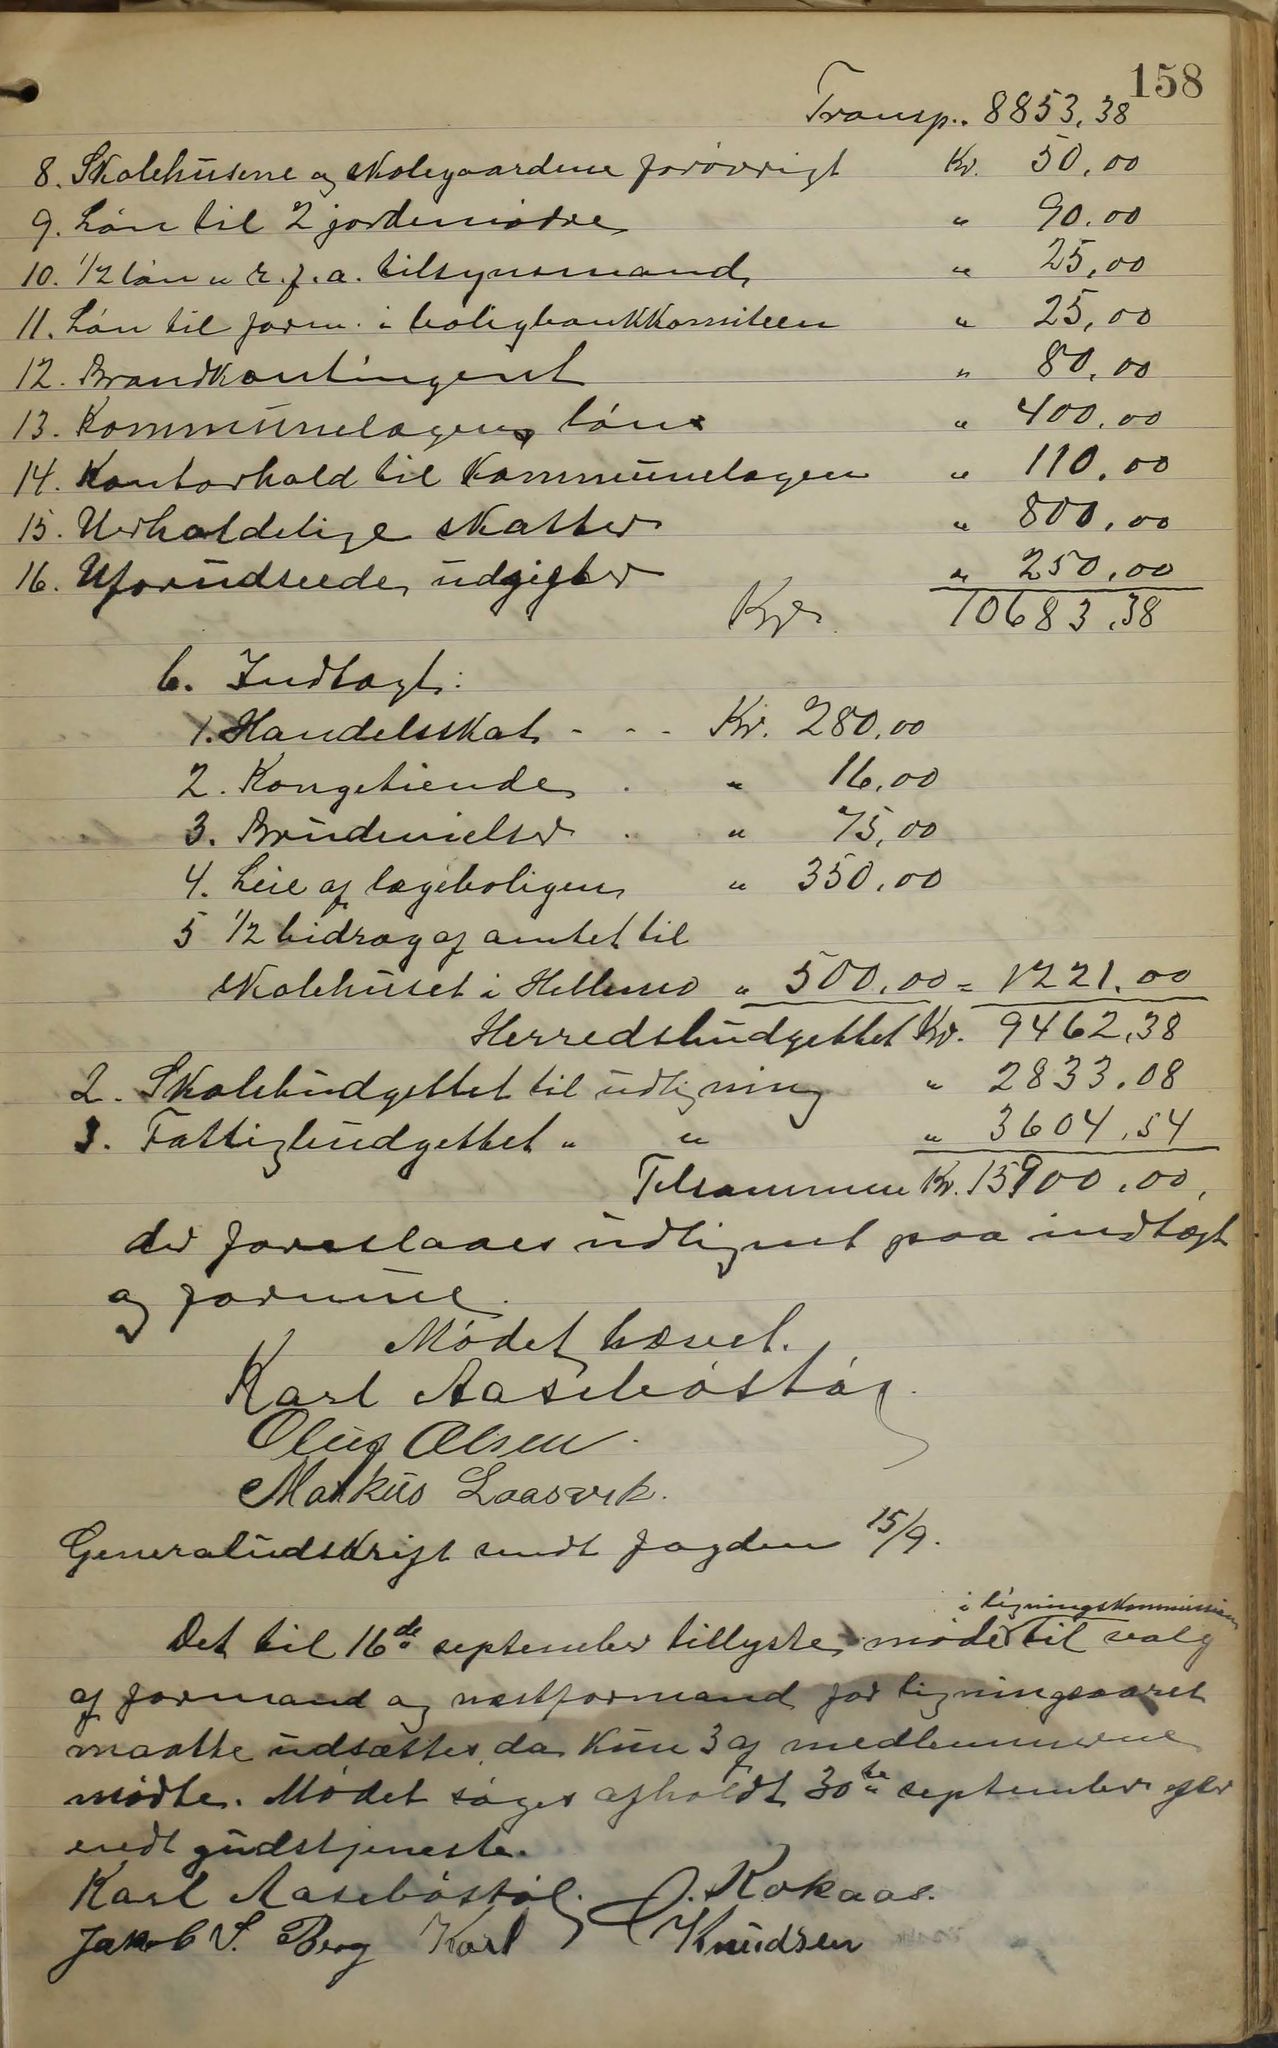 158
Transp.. 8853,38
8. Skolehusene og skolegaardene forøvrigt Kr. 50,00
9. Løn til 2 jordemødre " 90,00
10. 1/2 løn " r.f.a. tilsynsmand " 25,00
11. Løn til form. i boligbankkomiteen " 25,00
12. Brandkontingent " 80,00
13. Kommunelægens løn " 400,00
14. Kontorhold til kommunelægen " 110,00
15. Uerholdelige skatter " 800,00
16. Uforudseede udgifter " 250,00
Kr. 10683,38
b. Indtægt:
1. Handelsskat - - - Kr. 280,00
2. Kongetiende . " 16,00
3. Brudevielser . " 75,00
4. Leie af lægeboligen " 350,00
5 1/2 bidrag af amtet til
skolehuset i Hellemo " 500,00 = 1221,00
Herredsbudgettet Kr. 9462,38
2. Skolebudgettet til udligning " 2833,08
3. Fattigbudgettet " " " 3604,54
Tilsammen Kr. 15900,00,
der foreslaaes udlignet paa indtægt
og formue.
Mødet hævet.
Karl Aasebøstøl
Oluf Olsen
Markus Laasvik.
Generaludskrift sendt fogden 15/9.
i ligningskommissionen
Det til 16de september tillyste møde til valg
af formand og næstformand for ligningsaaret
maatte udsættes da kun 3 af medlemmerne
mødte. Mødet søges afholdt 30te september efter
endt gudstjeneste.
Karl Aasebøstøl. J. Kokaas.
Jakob S. Berg Karl Knudsen